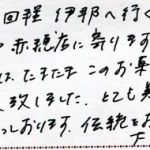 回程 伊那へ行く
赤穂店に寄ります
は、たまたま このお菓
致しました。とても美
っております。伝統をお